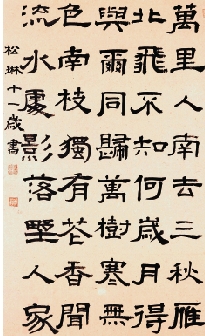 萬里人南去三秋雁
北飛不知何歲月得
與爾同歸萬樹寒無
色南枝獨有花香聞
流水處影落野人家
松琳十一歲書